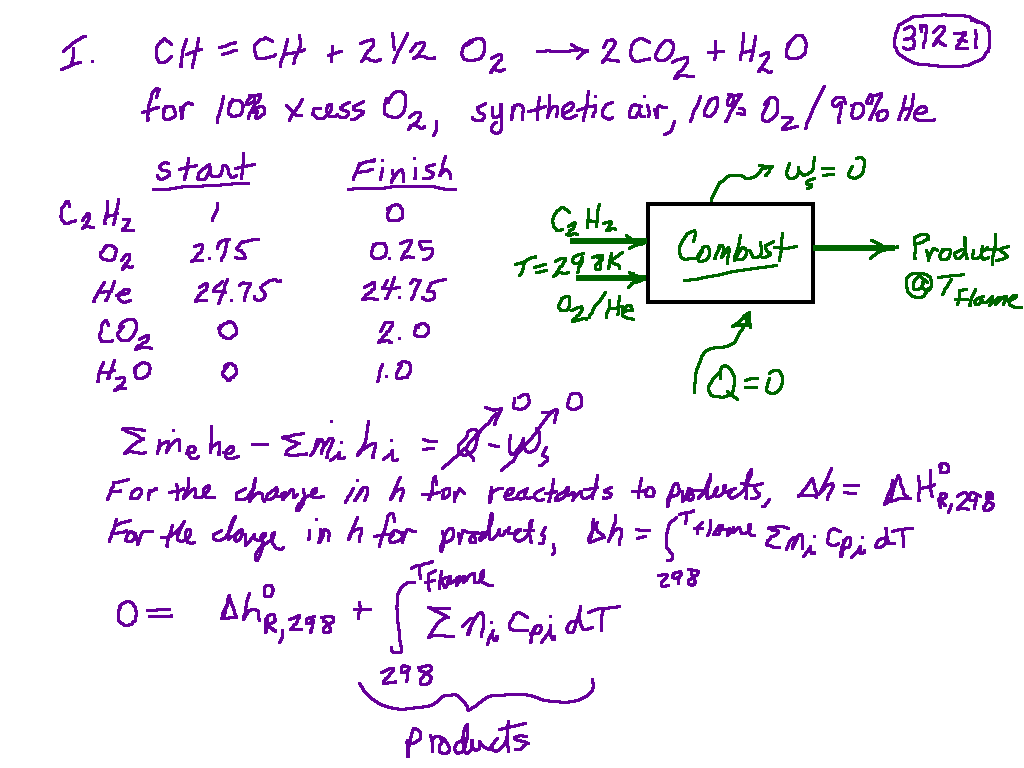 I. CH = CH + 2 1/2 O2 → 2 CO2 + H2O
372 z1
for 10% xcess O2, synthetic air, 10% O2/90% He
start Finish
C2H2 1 0
O2 2.75 0.25
He 24.75 24.75
CO2 0 2.0
H2O 0 1.0
Ws = 0
C2H2
T=298K
O2/He
Combust
Products
@ TFlame
Q=0
Σ ṁe he − Σ ṁi hi = Q̇ − Ẇs
0 0
For the change in h for reactants to products, Δh = ΔH°R,298
For the change in h for products, Δh = ∫298^TFlame Σ ni Cpi dT
0 = Δh°R,298 + ∫298^TFlame Σ ni Cpi dT
Products